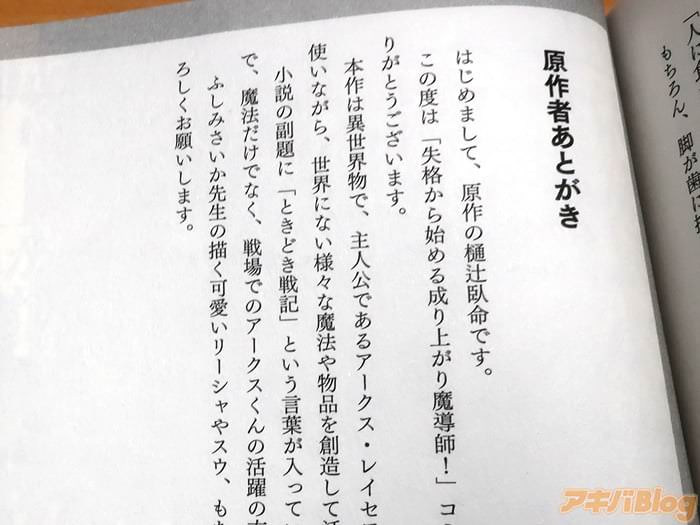 「人に
もちろん、脚が歯に
原作者あとがき
はじめまして、原作の樋辻臥命です。
この度は「失格から始める成り上がり魔導師!」コミ
りがとうございます。
本作は異世界物で、主人公であるアークス・レイセフ
使いながら、世界にない様々な魔法や物品を創造して活
小説の副題に「ときどき戦記」という言葉が入ってい
で、魔法だけでなく、戦場でのアークスくんの活躍の
ふしみさいか先生の描く可愛いリーシャやスウ、もち
ろしくお願いします。
アキバBlog